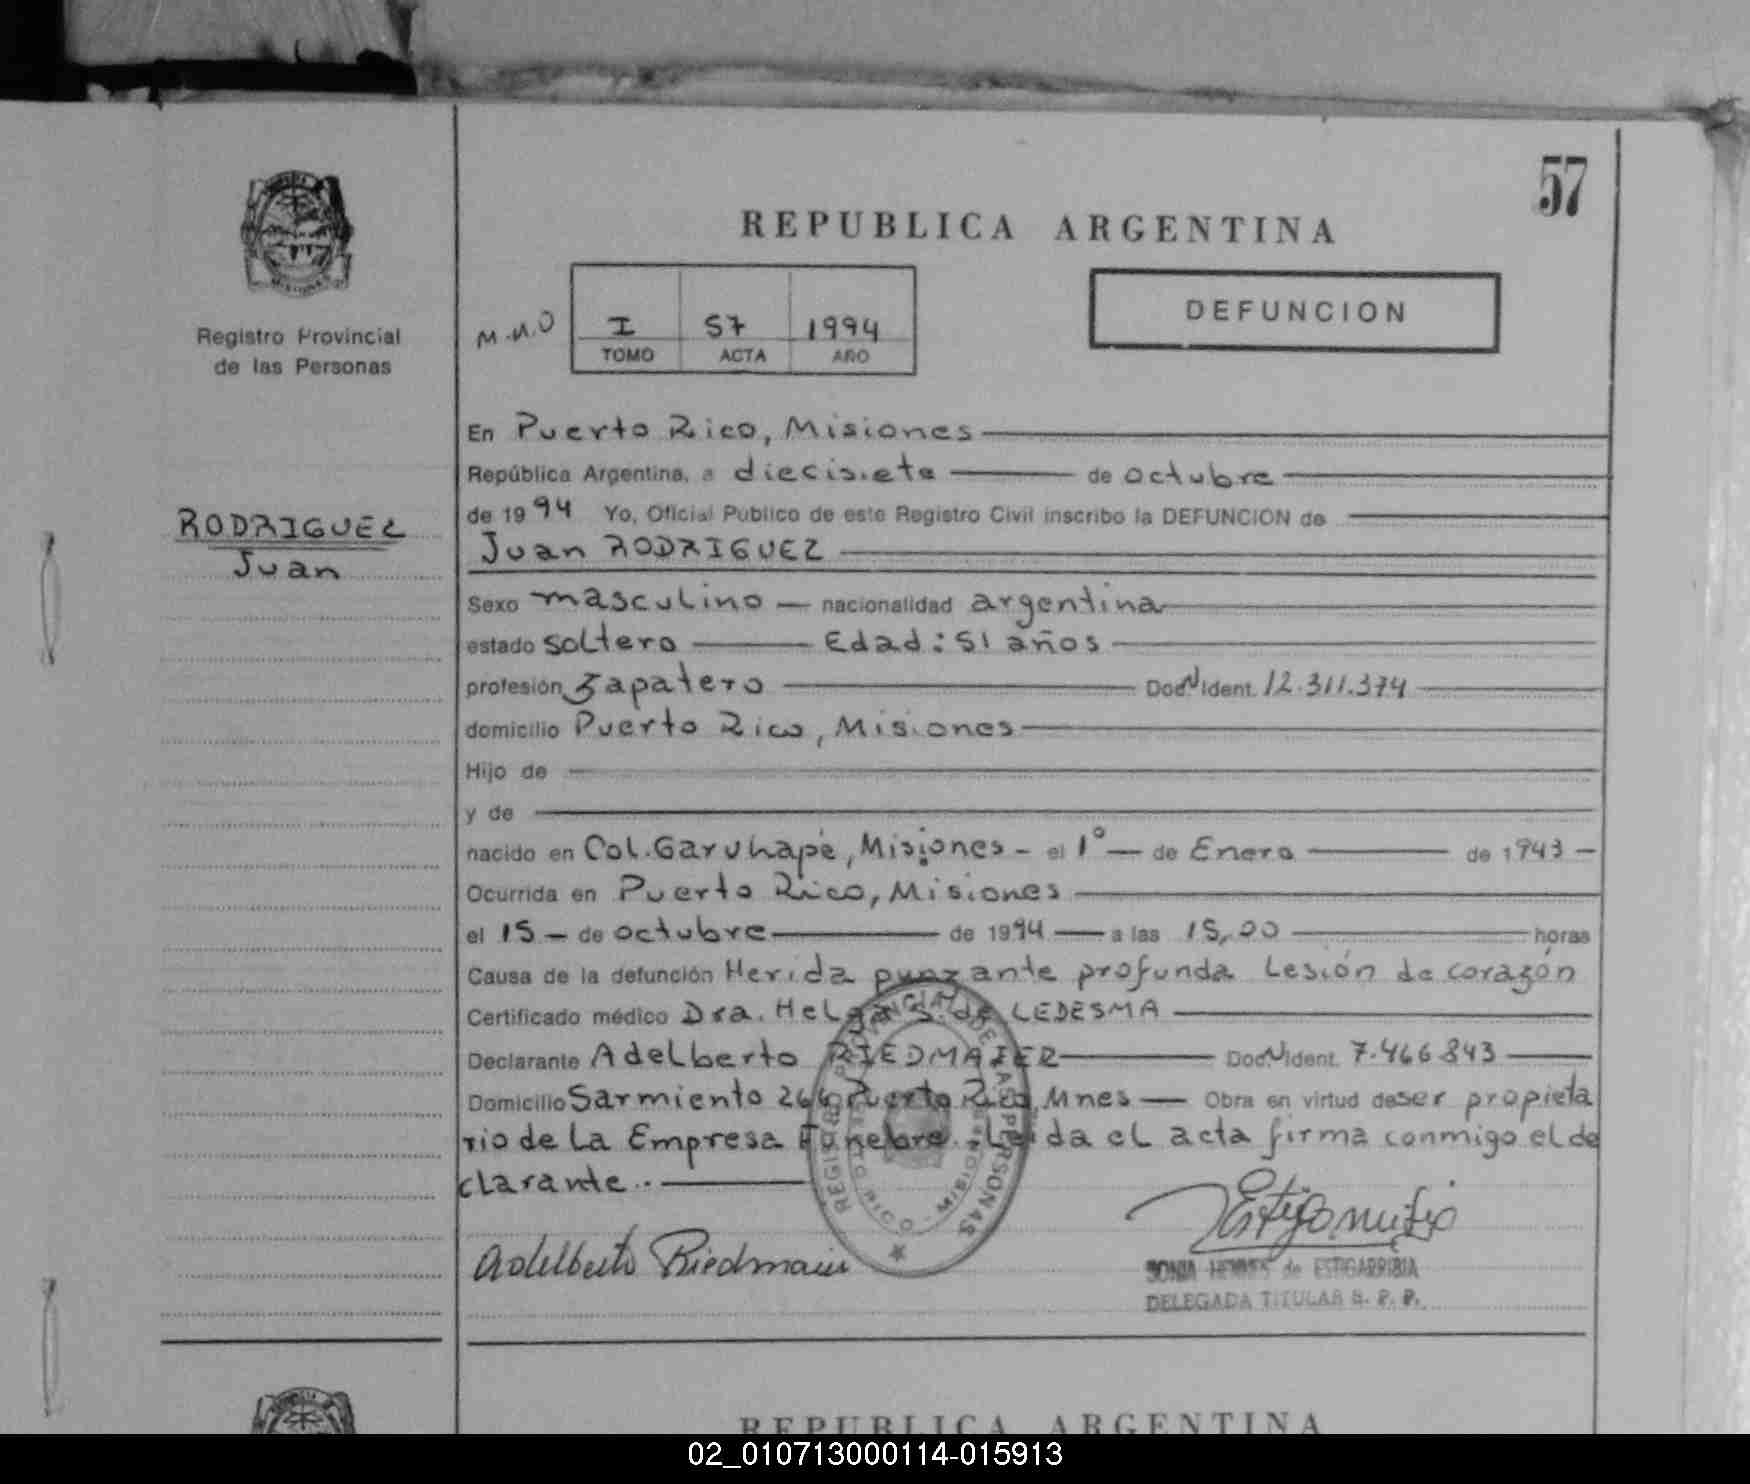 57
REPUBLICA ARGENTINA
DEFUNCION
M.N.O I 57 1994
TOMO ACTA AÑO
Registro Provincial
de las Personas
RODRIGUEZ
Juan
En Puerto Rico, Misiones
República Argentina, a diecisiete de octubre
de 1994 Yo, Oficial Público de este Registro Civil inscribo la DEFUNCION de
Juan RODRIGUEZ
Sexo masculino nacionalidad argentina
estado soltero Edad: 51 años
profesión zapatero Doc N Ident. 12.311.374
domicilio Puerto Rico, Misiones
Hijo de
y de
nacido en Col. Garuhapé, Misiones - el 1° de Enero de 1943
Ocurrida en Puerto Rico, Misiones
el 15 de octubre de 1994 a las 15,00 horas
Causa de la defunción Herida punzante profunda Lesión de corazón
Certificado médico Dra. Helga S. de LEDESMA
Declarante Adelberto RIEDMAIER Doc N Ident. 7.466.843
Domicilio Sarmiento 266 Puerto Rico, Mnes Obra en virtud de ser propieta
rio de la Empresa Funebre.- Leída el acta firma conmigo el de
clarante.-
REGISTRO PROVINCIAL DE LAS PERSONAS
PUERTO RICO - MISIONES
Adelberto Riedmaier
SONIA HENNES de ESTIGARRIBIA
DELEGADA TITULAR R. P. P.
REPUBLICA ARGENTINA
02_010713000114-015913